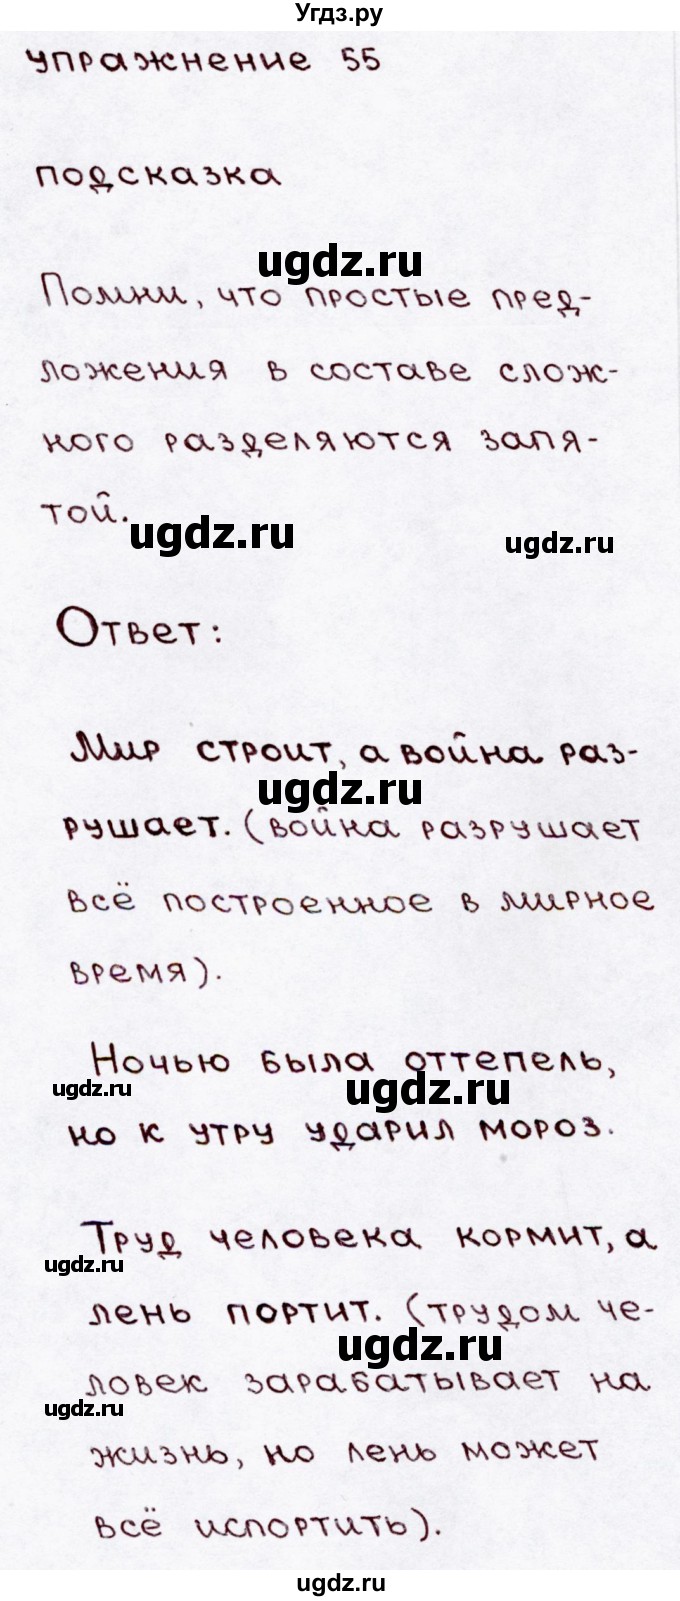 Угдз.ру
упражнение 55
подсказка
ugdz.ru
Помни, что простые пред-
ложения в составе слож-
ного разделяются запя-
той.
ugdz.ru
ugdz.ru
Ответ:
Мир строит, а война раз-
ugdz.ru
рушает. (война разрушает
всё построенное в мирное
время).
Ночью была оттепель,
ugdz.ru
ugdz.ru
но к утру ударил мороз.
Труд человека кормит, а
ugdz.ru
лень портит. (трудом че-
ugdz.ru
ловек зарабатывает на
ugdz.ru
жизнь, но лень может
всё испортить).
ugdz.ru